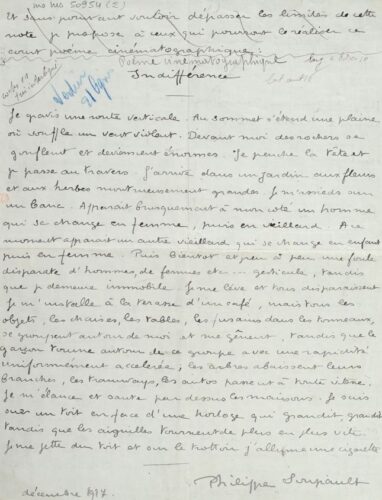 no ms 50954 (2)
Et sans pourtant vouloir dépasser les limites de cette
note je propose à ceux qui pourront le réaliser ce
court poème cinématographique :
Poème cinématographique
Indifférence
Je gravis une route verticale. Au sommet s'étend une plaine
où souffle un vent violent. Devant moi des rochers se
gonflent et deviennent énormes. Je penche la tête et
je passe au travers. J'arrive dans un jardin aux fleurs
et aux herbes monstrueusement grandes. Je m'assieds sur
un banc. Apparaît brusquement à mon côté un homme
qui se change en femme, puis en vieillard. A ce
moment apparaît un autre vieillard qui se change en enfant
puis en femme. Puis bientôt et peu à peu une foule
disparate d'hommes, de femmes etc... gesticule, tandis
que je demeure immobile. Je me lève et tous disparaissent
Je m'installe à la terasse d'un café, mais tous les
objets, les chaises, les tables, les fusains dans les tonneaux,
se groupent autour de moi et me gênent, tandis que le
garçon tourne autour de ce groupe avec une rapidité
uniformément accélerée, les arbres abaissent leurs
branches, les tramways, les autos passent à toute vitesse.
Je m'élance et saute par dessus les maisons. Je suis
sur un toit en face d'une horloge qui grandit grandit
tandis que les aiguilles tournent de plus en plus vite.
Je me jette du toit et sur le trottoir j'allume une cigarette
Philippe Soupault
décembre 1917